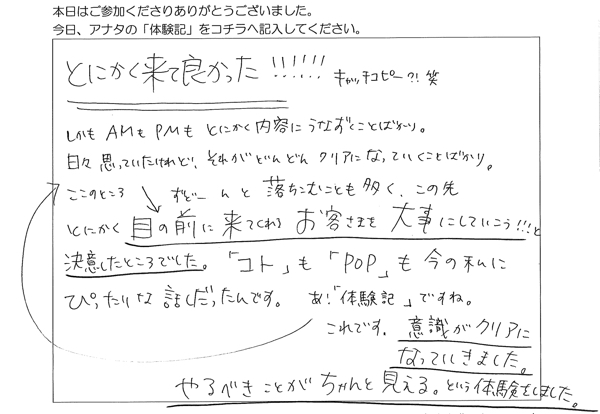 本日はご参加くださりありがとうございました。
今日、アナタの「体験記」をコチラへ記入してください。
とにかく来て良かった!!!!!! キャッチコピー?!笑
しかも AMも PMも とにかく内容にうなずくことばかり。
日々 思っていたけれど、それがどんどん クリアになっていくことばかり。
ここのところ ずどーんと 落ちこむことも多く、この先
とにかく 目の前に来てくれる お客さまを 大事にしていこう!!!と
決意したところでした。「コト」も「POP」も 今の私に
ぴったりな 話しだったんです。 あ!「体験記」ですね。
これです。意識がクリアに
なっていきました。
やるべきことが ちゃんと見える。という体験をしました。